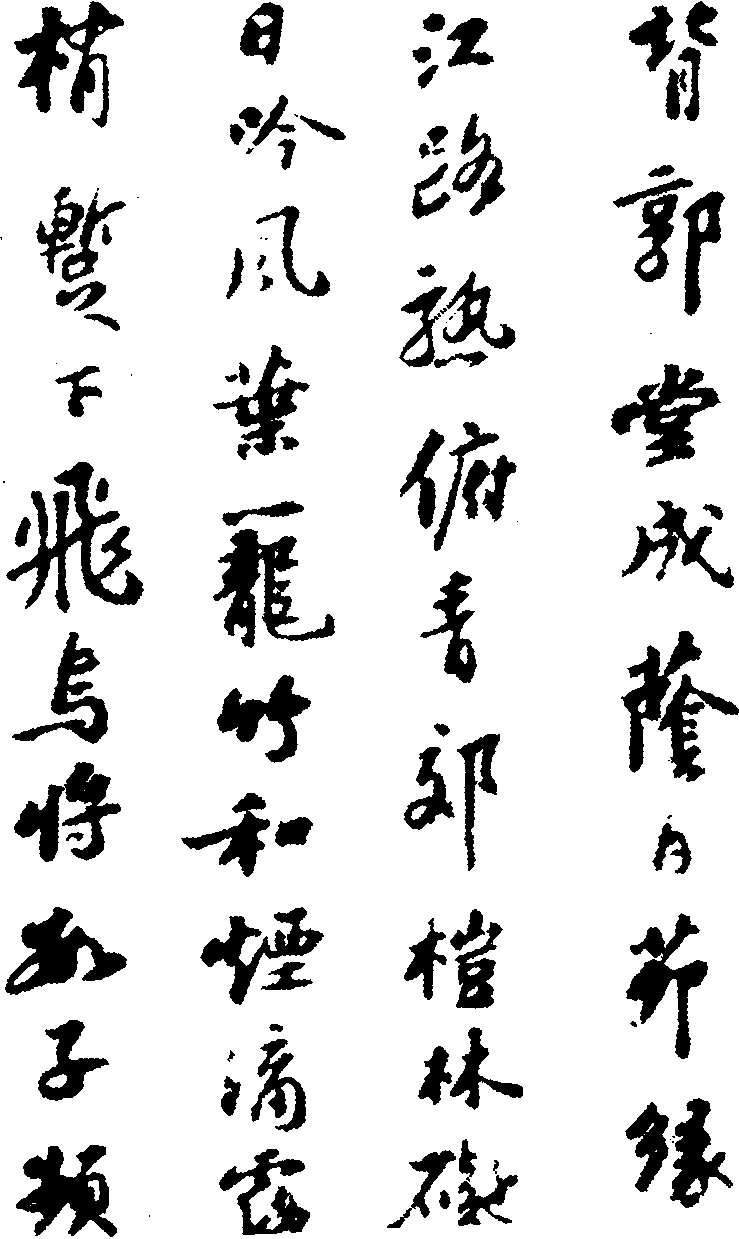 背郭堂成蔭白茆緣
江路熟俯青郊榿林礙
日吟風葉籠竹和煙滴露
梢暫下飛烏將數子頻